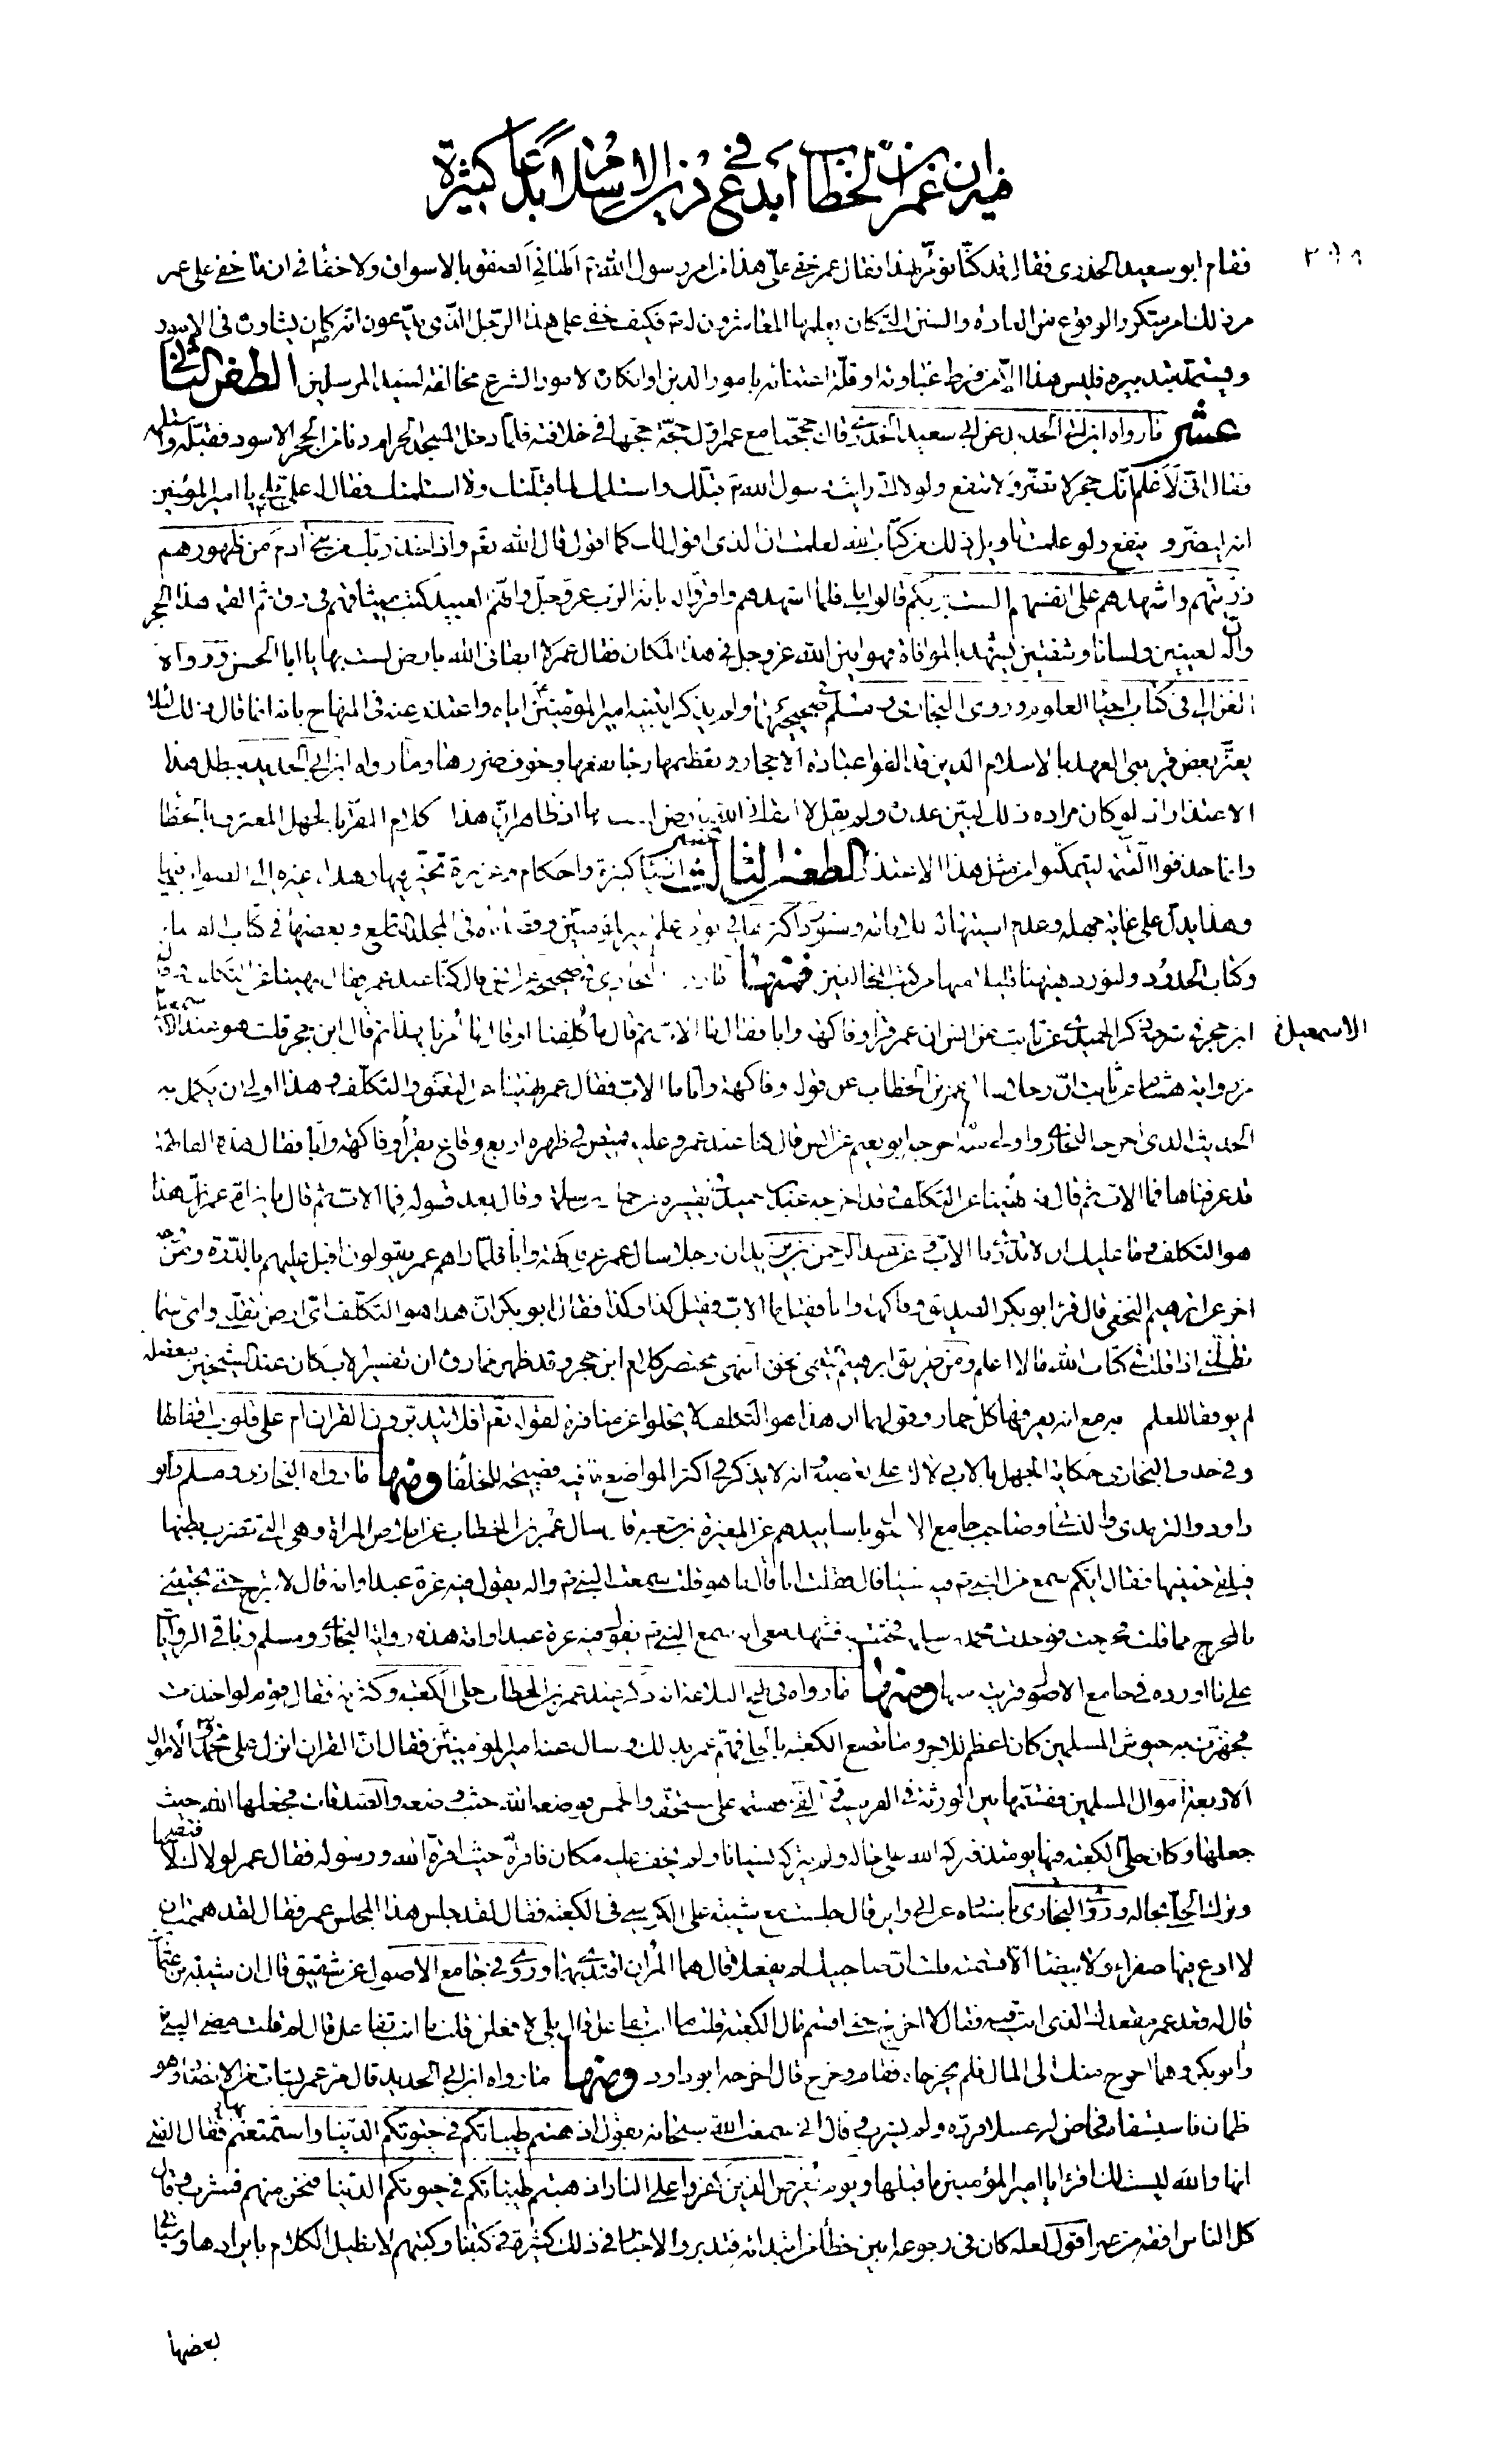 في ان عمر بن الخطاب أبدع في دين الاسلام بدعا كثيرة
فقام ابو سعيد الخدرى فقال قد كنّا نؤمر بهذا فقال عمر خفى علىّ هذا من امر رسول الله ص الهانى الصفق بالاسواق ولا خفأ فى ان ما خفى على عمر
من ذلك امر متكرر الوقوع من العادة والسنن التى كان يعلمها المعاشرون له ص فكيف خفى على هذا الرّجل الّذى يدّعون انه كان يشاوره فى الامور
ويستمدّ بتدبيره فليس هذا الّا من فرط غباوته او قلّة اعتنائه بامور الدين او انكاره لامور الشرع مخالفة لسيد المرسلين الطعن الثانى
عشر ما رواه ابن ابى الحديد عن ابى سعيد الخدرى قال حججنا مع عمر اوّل حجّة حجّها فى خلافته فلمّا دخل المسجد الحرام دنا من الحجر الاسود فقبّله واستلمه
فقال انّى لأعلم انّك حجر لا تضرّ ولا تنفع ولولا انّى رايت رسول الله ص قبّلك واستلمك لما قبّلتك ولا استلمتك فقال له على ع بلى يا امير المؤمنين
انه ليضرّ و ينفع ولو علمت تاويل ذلك من كتاب الله لعلمت ان الذى اقول لك كما اقول قال الله تعم واذ اخذ ربّك من بنى آدم من ظهورهم
ذرّيتهم واشهدهم على انفسهم الست بربّكم قالوا بلى فلمّا اشهدهم واقرّوا له بانه الرّب عزّ وجلّ وانّهم العبيد كتب ميثاقهم فى رق ثم القمه هذا الحجر
وانّ له لعينين ولسانا وشفتين يشهد بالموافاة فهو امين الله عز وجل فى هذا المكان فقال عمر لا ابقانى الله بارض لست بها يا ابا الحسن ورواه
الغزالى فى كتاب احيا العلوم وروى البخارى ومسلم فى صحيحيهما ولم يذكرا تنبيه امير المؤمنين ع اياه واعتذر عنه فى المنهاج بانه انما قال ذلك لئلا
يغترّ بعض قريبى العهد بالاسلام الذين قد الفوا عبادة الاحجار وتعظيمها رجاء نفعها وخوف ضررها وما رواه ابن ابى الحديد يبطل هذا
الاعتذار اذ لو كان مراده ذلك لبيّن عذره ولم يقل لا ابقانى الله بارض لست بها اذ ظاهر انّ هذا كلام المقرّ بالجهل المعترف بالخطا
وانما حذفوا التّتمة ليتمكّنوا من مثل هذا الاعتذار الطعن الثالث عشر اشيا كثيرة واحكام غزيرة تحيّر فيها وهداه غيره الى الصواب فيها
وهذا يدلّ على غاية جهله وعدم استيهاله للامامة وسنورد اكثرها فى ابواب علم امير المؤمنين وقضاياه فى المجلد التاسع وبعضها فى كتاب القضاء
وكتاب الحدود ولنورد هيهنا قليلا منها من كتب المخالفين فمنها ما رواه البخارى فى صحيحه عن انس قال كنّا عند عمر فقال نهينا عن التكلف وقال
ابن حجر فى شرحه ذكر الحميدى عن ثابت عن انس ان عمر قرأ وفاكهة وابا فقال ما الابّ ثم قال ما كلّفنا او قال ما أمرنا بهذا ثم قال ابن حجر قلت هو عند
الاسمعيلى
من رواية هشام عن ثابت انّ رجلا سأل عمر بن الخطاب عن قوله وفاكهة وابا ما الابّ فقال عمر نهينا عن التعمّق والتكلّف وهذا اولى ان يكمل به
الحديث الذى اخرجه البخارى واولى منه ما اخرجه ابو نعيم عن انس قال كنا عند عمر وعليه قميص فى ظهره اربع رقاع يقرأ وفاكهة وأبا فقال هذه الفاكهة
قد عرفناها فما الابّ ثم قال مه نهينا عن التكلّف وقد اخرجه عبد بن حميد فى تفسيره من حماد بن سلمة وقال بعد قوله فما الابّ ثم قال يا ابن ام عمر انّ هذا
هو التكلف وما عليك ان لا تدرى ما الابّ وعن عبد الرحمن بن يزيد ان رجلا سال عمر عن فاكهة وابا فلما راهم عمر يقولون اقبل عليهم بالدّرة ومن وجه
اخر عن ابرهيم النخعى قال قرأ ابو بكر الصديق وفاكهة وابا فقيل ما الابّ وقيل كذا وكذا فقال ابو بكر انّ هذا هو التكلّف اىّ ارض تقلّنى واىّ سما
تظلّنى اذا قلت فى كتاب الله ما لا اعلم ومن طريق ابرهيم التيمى نحوه انتهى مختصر كلام ابن حجر وقد ظهر مما رواه ان تفسير الابّ كان عند الشيخين معضلة
لم يوفقا للعلم به مع انه يعرفها كل حمار وقولهما ان هذا هو التكلف لا يخلوا عن منافرة لقوله تعم افلا يتدبّرون القران ام على قلوب اقفالها
وفى حذف البخارى حكاية الجهل بالابّ دلالة على تعصبه وانه لا يذكر فى اكثر المواضع ما فيه فضيحة للخلفا ومنها ما رواه البخارى ومسلم وابو
داود والترمذى والنسائى وصاحب جامع الاصول باسانيدهم عن المغيرة بن شعبة قال سال عمر بن الخطاب عن املاص المراة وهى التى تضرب بطنها
فيلقى جنينها فقال ايّكم سمع من النبى ص فيه شيئا قال فقلت انا قال ما هو قلت سمعت النبى ص واله يقول فيه غرة عبد او امة قال لا تبرح حتى تجيئنى
بالمخرج مما قلت فخرجت فوجدت محمد بن مسلمة فجئت به فشهد معى انه سمع النبى ص يقول فيه غرة عبد او امة هذه رواية البخارى ومسلم وباقى الروايات
على ما اورده فى جامع الاصول قريب منها ومنها ما رواه فى نهج البلاغة انه ذكر عند عمر بن الخطاب حلى الكعبة وكثرته فقال قوم لو اخذت
فجهزت به جيوش المسلمين كان اعظم للاجر وما تصنع الكعبة بالحلى فهمّ عمر بذلك وسال عنه امير المؤمنين ع فقال انّ القران انزل على محمد ص والاموال
الاربعة اموال المسلمين فقسّمها بين الورثة فى الفرايض والفئ فقسمه على مستحقيه والخمس فوضعه الله حيث وضعه والصدقات فجعلها الله حيث
جعلها وكان حلى الكعبة فيها يومئذ فتركه الله على حاله ولم يتركه نسيانا ولم يخف عليه مكان فاقرّه حيث اقرّه الله ورسوله فقال عمر لولاك لافتضحنا
وترك الحلى بحاله وروى البخارى باسناده عن ابى وايل قال جلست مع شيبة على الكرسى فى الكعبة فقال لقد جلس هذا المجلس عمر فقال لقد هممت ان
لا ادع فيها صفراء ولا بيضا الّا قسمته قلت انّ صاحبيك لم يفعلا قال هما المرآن اقتدى بهما وروى فى جامع الاصول عن شقيق قال ان شيبة بن عثمان
قال له قعد عمر مقعدك الذى انت فيه فقال لا اخرج حتى اقسم مال الكعبة قلت ما انت بفاعل قال بلى لافعلن قلت ما انت بفاعل قال لم قلت مضى النبى
وابو بكر وهما احوج منك الى المال فلم يخرجاه فقام وخرج قال اخرجه ابو داود ومنها ما رواه ابن ابى الحديد قال مرّ عمر بشاب من الانصار وهو
ظمان فاستسقاه فخاض له عسلا فردّه ولم يشرب وقال انى سمعت الله سبحانه يقول اذهبتم طيباتكم فى حيوتكم الدّنيا واستمتعتم بها فقال الفتى
انها والله ليست لك اقرأ يا امير المؤمنين ما قبلها ويوم يعرض الذين كفروا على النار اذهبتم طيباتكم فى حيوتكم الدّنيا فنحن منهم فشرب وقال
كل الناس افقه من عمر اقول لعله كان فى رجوعه ابين خطأ من ابتدائه فتدبر والاخبار فى ذلك كثيرة فى كتبنا وكتبهم لا نطيل الكلام بايرادها وسياتى
بعضها